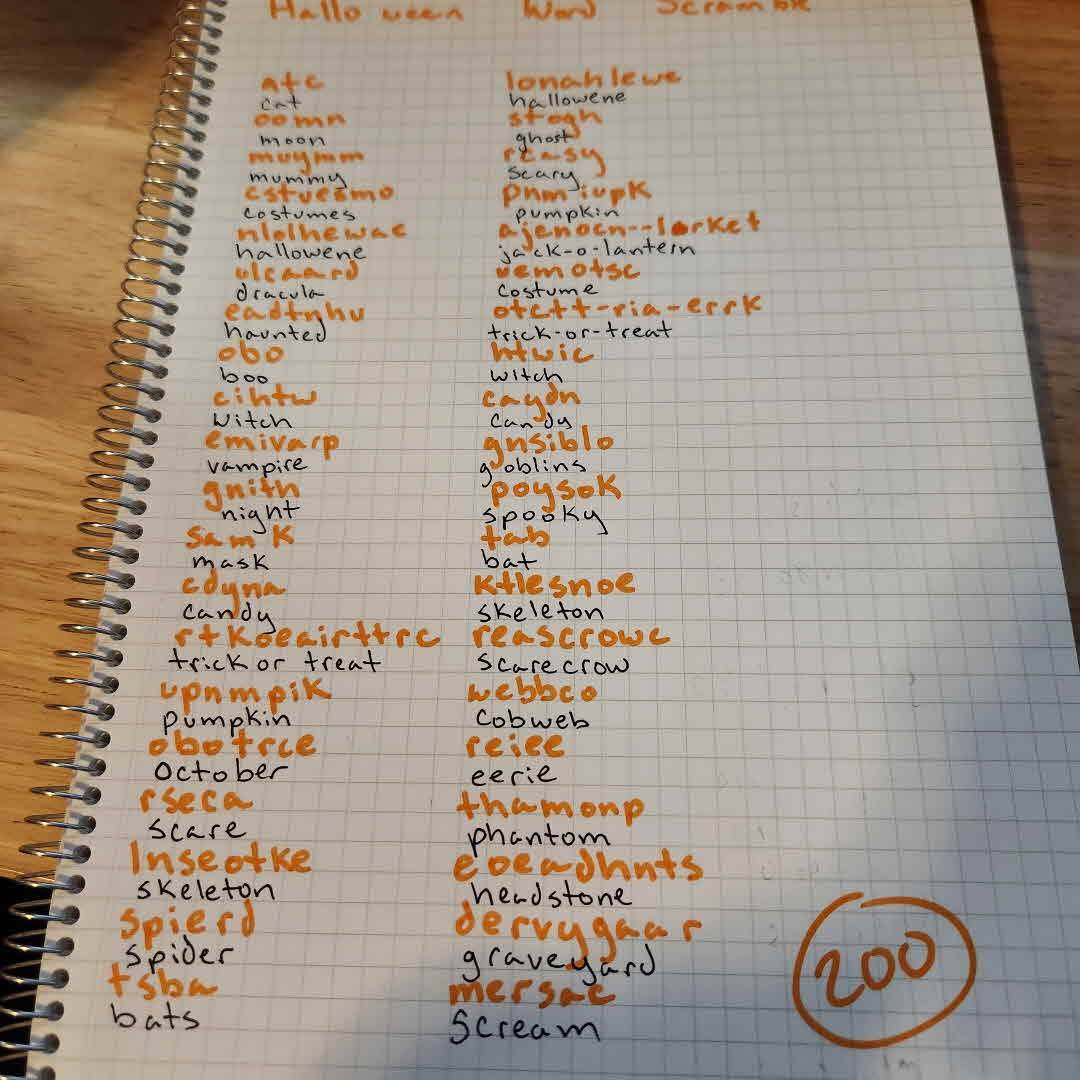 Halloween Word Scramble
atc
cat
oomn
moon
muymm
mummy
cstuesmo
costumes
nlolhewae
hallowene
ulcaard
dracula
eadtnhu
haunted
obo
boo
cihtw
witch
emivarp
vampire
gnith
night
samk
mask
cdyna
candy
rtkoeairttrc
trick or treat
upnmpik
pumpkin
obotrce
October
rseca
scare
lnseotke
skeleton
spierd
spider
tsba
bats
lonahlewe
hallowene
stogh
ghost
rcasy
scary
pnmiupk
pumpkin
ajenocn--lorket
jack-o-lantern
uemotsc
costume
otctt-ria-errk
trick-or-treat
htwic
witch
caydn
candy
gnsiblo
goblins
poysok
spooky
tab
bat
ktlesnoe
skeleton
reascrowc
scarecrow
webbco
cobweb
reiee
eerie
thamonp
phantom
eoeadhnts
headstone
dervygaar
graveyard
mersac
scream
200